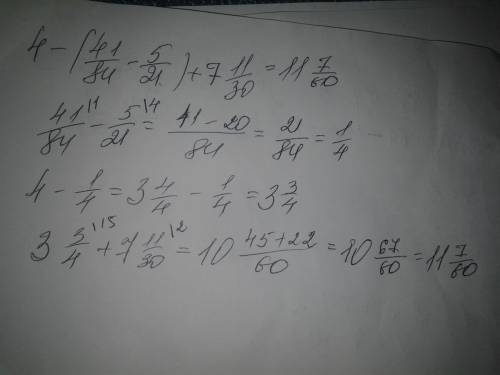 4 - (41/84 - 5/21) + 7 11/30 = 11 7/60
41/84 |1 - 5/21 |4 = 41-20/84 = 21/84 = 1/4
4 - 1/4 = 3 4/4 - 1/4 = 3 3/4
3 3/4 |15 + 7 11/30 |2 = 10 45+22/60 = 10 67/60 = 11 7/60